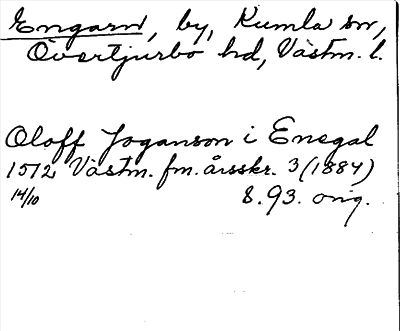 Engarn, by, Kumla sn,
Övertjurbo hd, Västm. l.
Oloff Joganson i Enegal
1572 Västm. fm. årsskr. 3 (1884)
14/10 s. 93. orig.